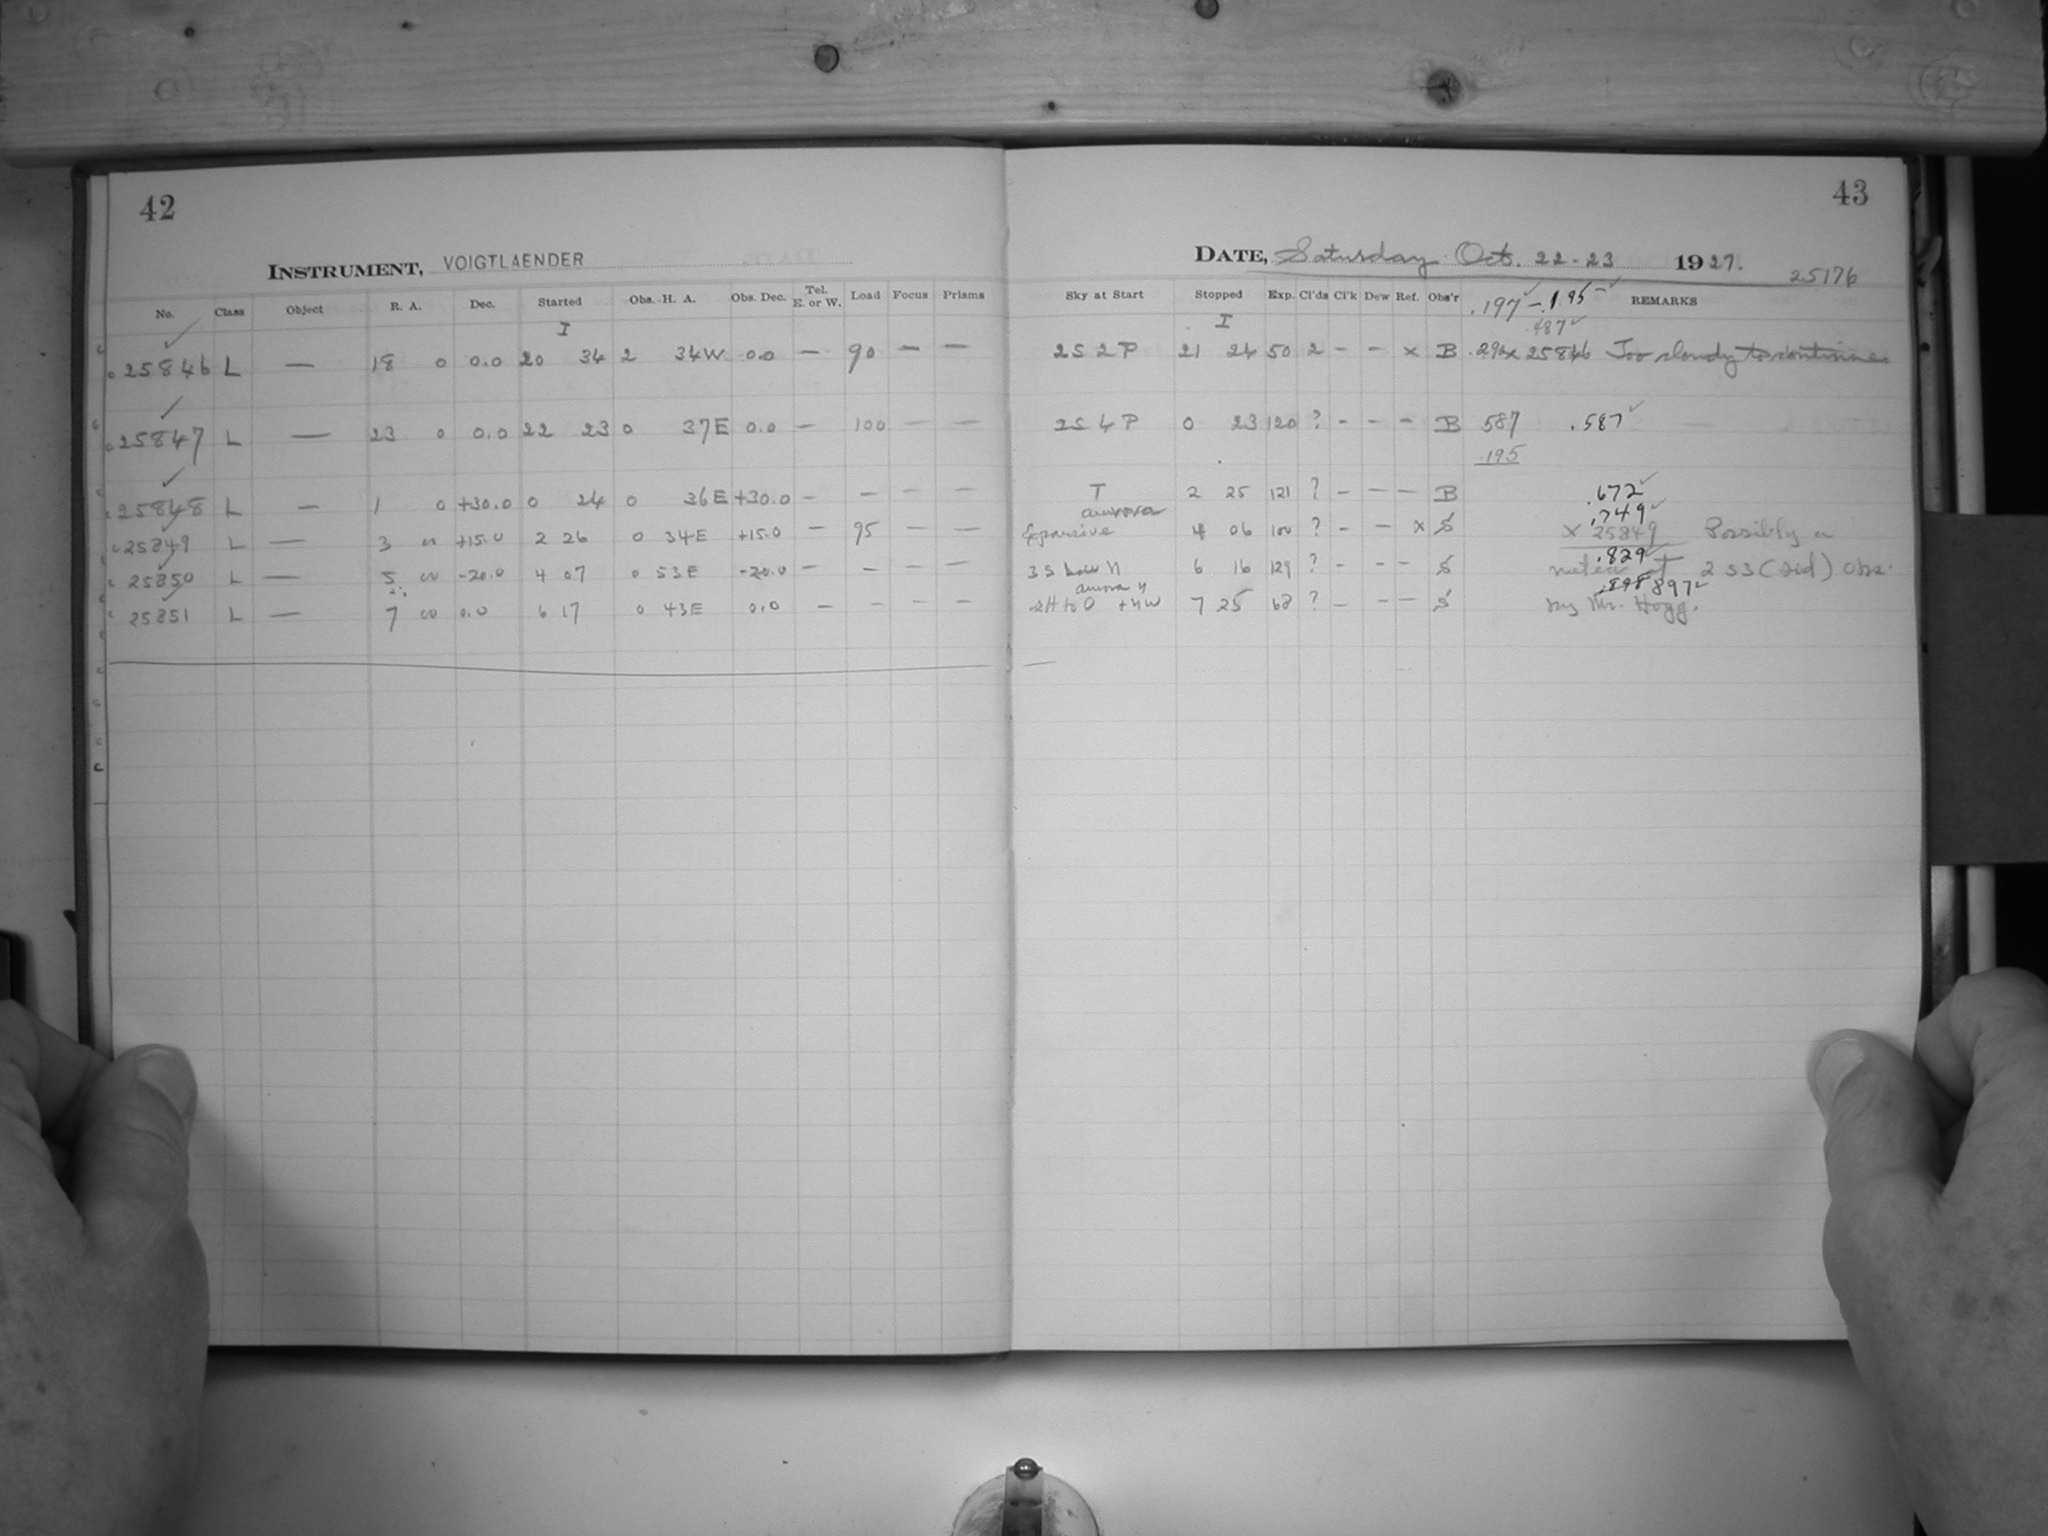 42
INSTRUMENT, VOIGTLAENDER
No. Class Object R. A. Dec. Started Obs. H. A. Obs. Dec. Tel. E. or W. Load Focus Prisms
I
25846 L — 18 0 0.0 20 34 2 34W 0.0 — 90 — —
25847 L — 23 0 0.0 22 23 0 37E 0.0 — 100 — —
25848 L — 1 0 +30.0 0 24 0 36E +30.0 — — — —
25849 L — 3 00 +15.0 2 26 0 34E +15.0 — 95 — —
25850 L — 5 00 -20.0 4 07 0 53E -20.0 — — — —
25851 L — 7 00 0.0 6 17 0 43E 0.0 — — — —
43
DATE, Saturday Oct. 22-23 1927.
25176
Sky at Start Stopped Exp. Cl'ds Cl'k Dew Ref. Obs'r REMARKS
.197 — 1.95
.487
I
2S 2P 21 24 50 2 — — x B .292 x 25846 Too cloudy to continue
2S 4P 0 23 120 ? — — — B 587 .587
.195
T 2 25 121 ? — — — B .672
aurora .749
Expansive 4 06 100 ? — — x S x 25849 Possibly a
.829
3S low N 6 16 129 ? — — — S meteor at 2 53 (sid) obs.
aurora N .898 897
2H to 0 + NW 7 25 68 ? — — — S by Mr. Hogg.